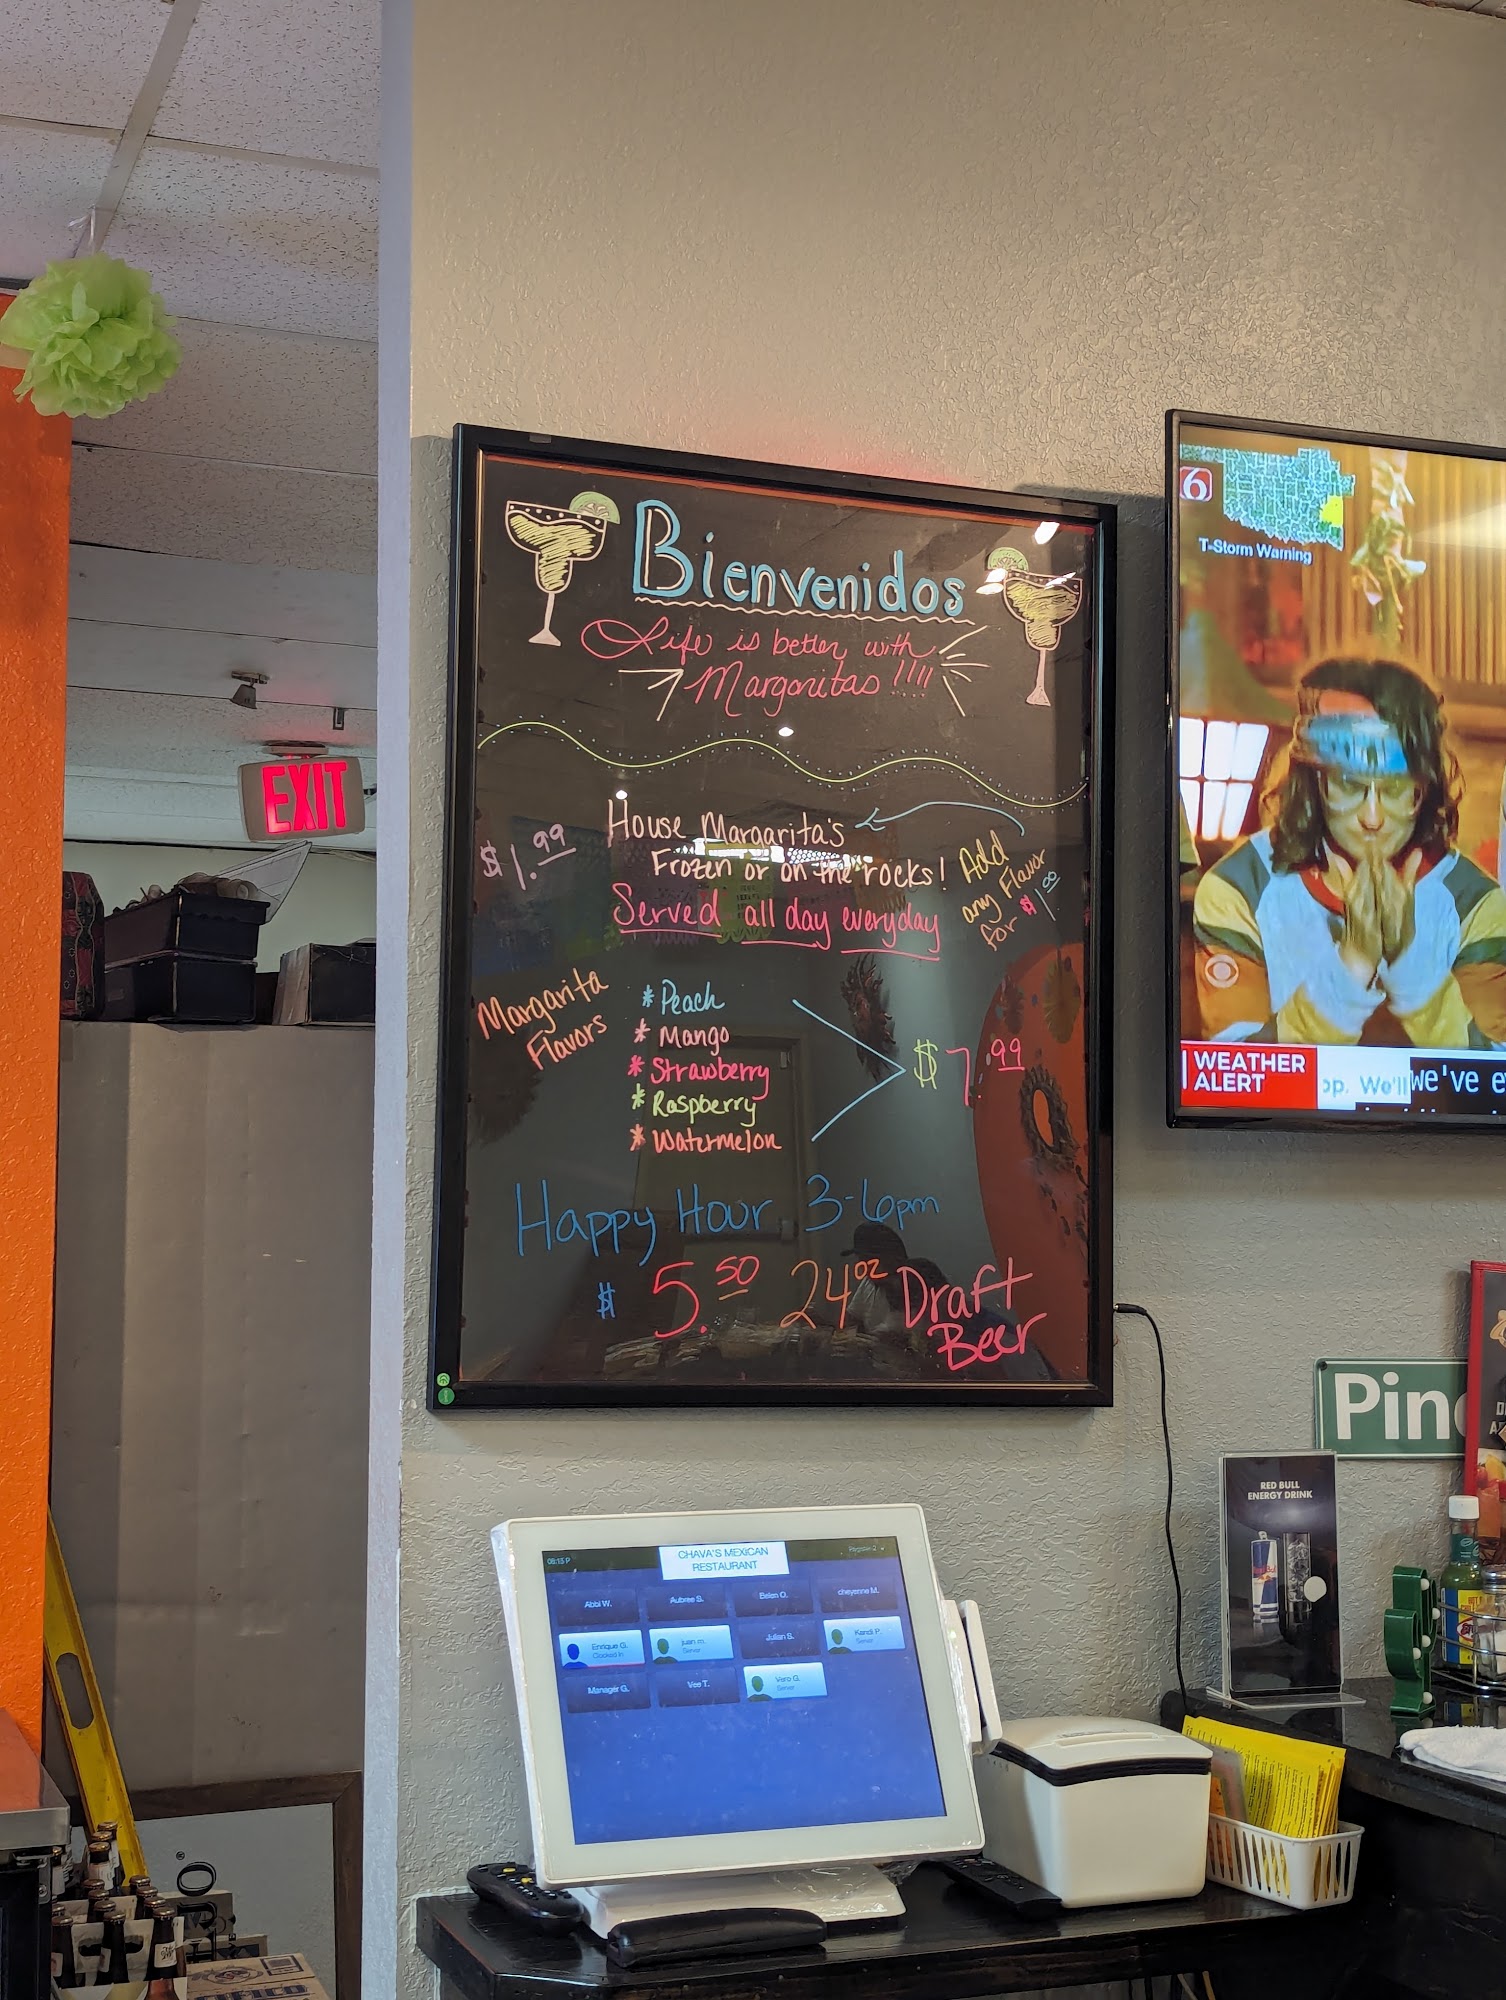 Bienvenidos
Life is better with
Margaritas !!!!
$1.99
House Margarita's
Frozen or on the rocks!
Served all day everyday
Add
any Flavor
for $1.00
Margarita
Flavors
* Peach
* Mango
* Strawberry
* Raspberry
* Watermelon
$7.99
Happy Hour 3-6pm
$5.50 24oz Draft
Beer
EXIT
6
T-Storm Warning
WEATHER
ALERT
op. We'll we've e
Pin
RED BULL
ENERGY DRINK
08:13 P
CHAVA'S MEXICAN
RESTAURANT
Register 2
Abbi W.
Aubree S.
Belen O.
cheyenne M.
Enrique G.
Clocked In
juan m.
Server
Julian S.
Kandi P.
Server
Manager G.
Vee T.
Vero G.
Server